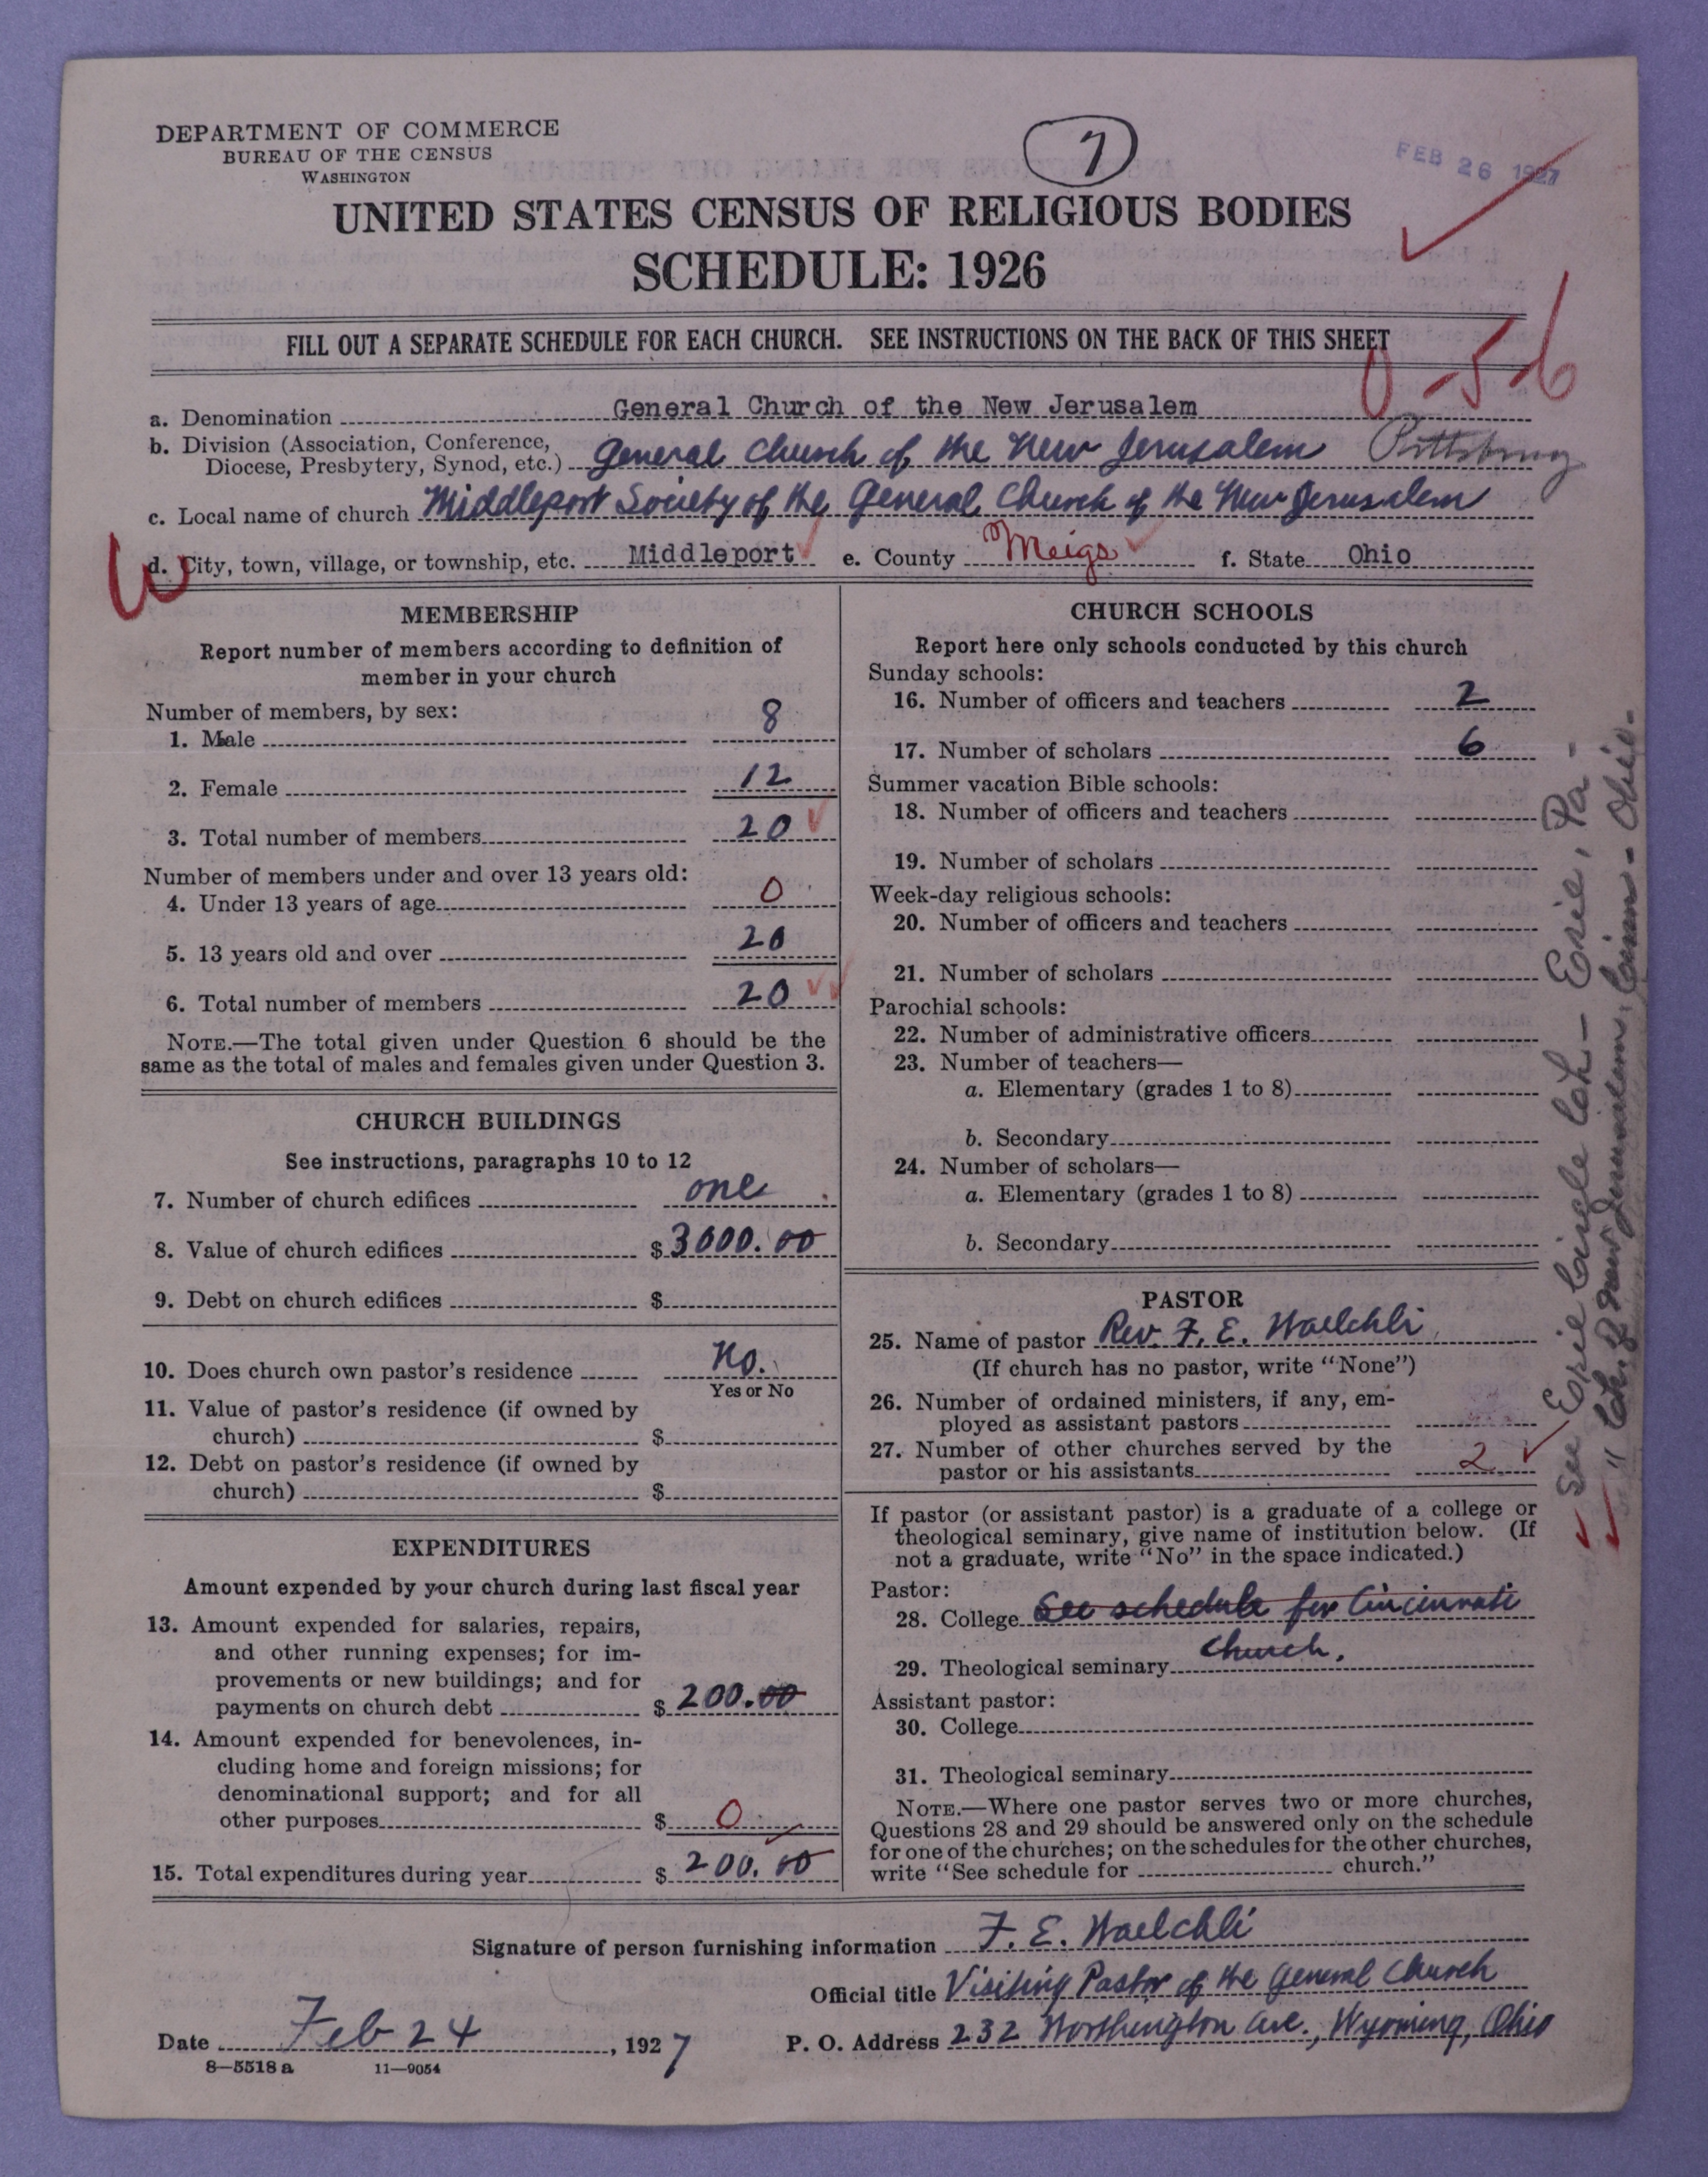 DEPARTMENT OF COMMERCE
BUREAU OF THE CENSUS
WASHINGTON
7
FEB 26 1927
UNITED STATES CENSUS OF RELIGIOUS BODIES
SCHEDULE: 1926
FILL OUT A SEPARATE SCHEDULE FOR EACH CHURCH. SEE INSTRUCTIONS ON THE BACK OF THIS SHEET
0-56
a. Denomination General Church of the New Jerusalem
b. Division (Association, Conference,
Diocese, Presbytery, Synod, etc.) General Church of the New Jerusalem Pittsburg
c. Local name of church Middleport Society of the General Church of the New Jerusalem
W
d. City, town, village, or township, etc. Middleport e. County Meigs f. State Ohio
MEMBERSHIP
Report number of members according to definition of
member in your church
Number of members, by sex:
1. Male 8
2. Female 12
3. Total number of members 20
Number of members under and over 13 years old:
4. Under 13 years of age 0
5. 13 years old and over 20
6. Total number of members 20
NOTE.—The total given under Question 6 should be the
same as the total of males and females given under Question 3.
CHURCH BUILDINGS
See instructions, paragraphs 10 to 12
7. Number of church edifices one
8. Value of church edifices $3000.00
9. Debt on church edifices $
10. Does church own pastor's residence No.
Yes or No
11. Value of pastor's residence (if owned by
church) $
12. Debt on pastor's residence (if owned by
church) $
EXPENDITURES
Amount expended by your church during last fiscal year
13. Amount expended for salaries, repairs,
and other running expenses; for im-
provements or new buildings; and for
payments on church debt $200.00
14. Amount expended for benevolences, in-
cluding home and foreign missions; for
denominational support; and for all
other purposes $ 0
15. Total expenditures during year $200.00
CHURCH SCHOOLS
Report here only schools conducted by this church
Sunday schools:
16. Number of officers and teachers 2
17. Number of scholars 6
Summer vacation Bible schools:
18. Number of officers and teachers
19. Number of scholars
Week-day religious schools:
20. Number of officers and teachers
21. Number of scholars
Parochial schools:
22. Number of administrative officers
23. Number of teachers—
a. Elementary (grades 1 to 8)
b. Secondary
24. Number of scholars—
a. Elementary (grades 1 to 8)
b. Secondary
PASTOR
25. Name of pastor Rev. F. E. Waelchli
(If church has no pastor, write "None")
26. Number of ordained ministers, if any, em-
ployed as assistant pastors
27. Number of other churches served by the
pastor or his assistants 2
If pastor (or assistant pastor) is a graduate of a college or
theological seminary, give name of institution below. (If
not a graduate, write "No" in the space indicated.)
Pastor:
28. College See schedule for Cincinnati
29. Theological seminary Church.
Assistant pastor:
30. College
31. Theological seminary
NOTE.—Where one pastor serves two or more churches,
Questions 28 and 29 should be answered only on the schedule
for one of the churches; on the schedules for the other churches,
write "See schedule for church."
See Erie Circle Ch — Erie, Pa —
" Ch. of New Jerusalem, Cinn - Ohio -
Signature of person furnishing information F. E. Waelchli
Official title Visiting Pastor of the General Church
Date Feb 24, 1927 P. O. Address 232 Worthington Ave., Wyoming, Ohio
8—5518 a 11—9054